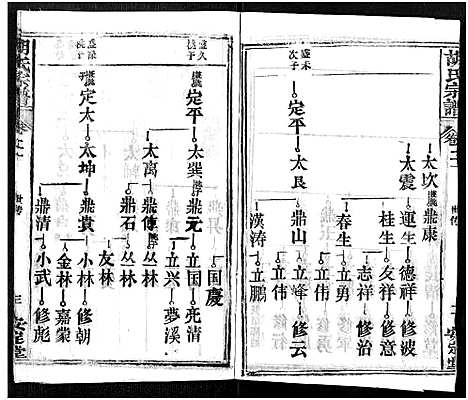 胡氏宗譜
卷之二
世傳
安定堂
太坎
鼎康
太震
運生
德祥
修波
桂生
友祥
修意
春生
志祥
修治
立勇
立偉
盛禾次子
定平
太艮
鼎山
立峰
修云
立偉
漢濤
立鵬
盛久
定平
太巽
鼎元
立國
亮清
國慶
立興
夢溪
太离
鼎傳
丛林
鼎石
丛林
友林
定太
太坤
鼎貴
小林
修朝
金林
嘉棠
鼎清
小武
修彪
世傳
三
安定堂